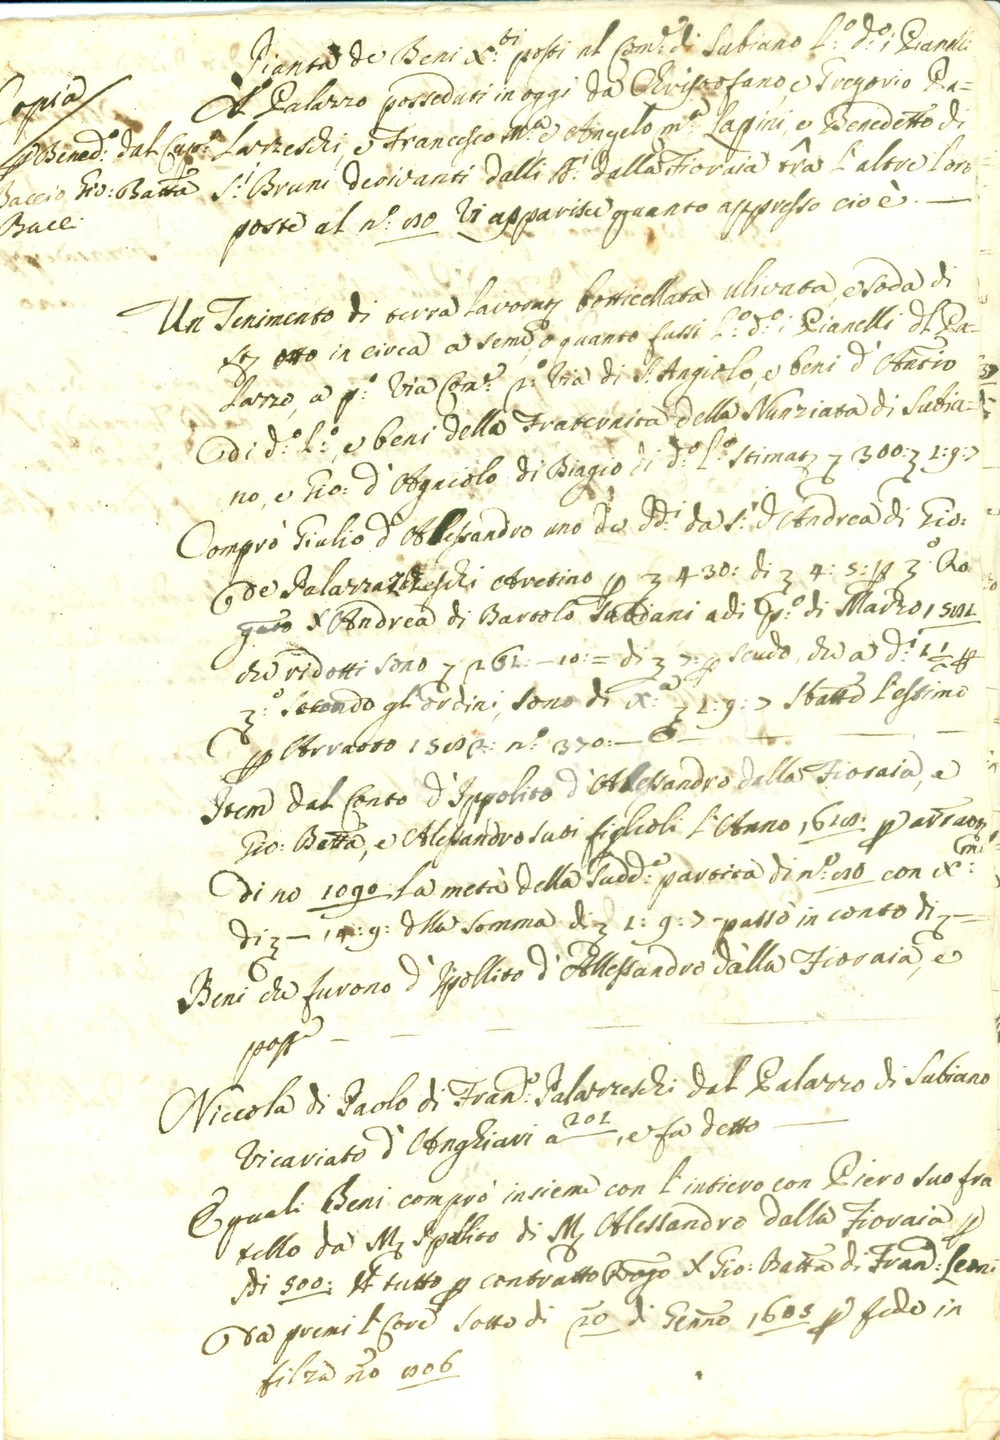 Copia
p Bened:º dal Cap:º
Baccio Gio: Batta
Bacci
Pianta de Beni X:ti posti nl Com:e di Subiano l:º d:º i Pianelli
dl Palazzo posseduti in oggi da Christofano e Gregorio Pa=
lazzeschi, e Francesco M:a e Angelo m:a Lapini, e Benedetto di
S:r Bruni derivanti dalli SS:ri dalla Fioraia trà l'altre loro
poste al n:º 810 Vi apparisce quanto appresso cioè —
Un Tenimento di terra lavorat: botticellata ulivata, e soda di
otto in circa a seme, o quanto fussi l:º d:º i Pianelli dl Pa=
lazzo, a p:º Via Com:e 2:º Via di S: Angiolo, e beni d'
di d:º l:º, e beni della Fraternita della Nunziata di Subia=
no, e Gio: d'Agnolo di Biagio di d:º l:º stimat: 300: 1: 9: 7
Comprò Giulio d'Alessandro uno de dd:i da S:r d'Andrea di Gio:
de Palazzeschi Aretino p 430: di 4: 5: p Ro
gato Andrea di Bartolo Subiani adi p:º di Marzo 1581
che ridotti sono 261: — 10: = di 7: p scudo, che a d:i
secondo gl'ordini, sono di X:a 1: 9: 7 sbatte l'estimo
p Arruoto 1582: n:º 370: —
Item dal Conto d'Ippolito d'Alessandro dalla Fioraia, e
Gio: Batta, e Alessandro suoi figlioli l'Anno 1618: p
di no 1090 la metà della sudd:a partita di n:º 810 con X:ma
di — 14: 9: dlla somma di 1: 9: 7 passò in conto di —
Beni che furono d'Ipollito d'Alessandro dalla Fioraia, e
poss:e —
Niccola di Paolo di Fran:º Palazzeschi dal Palazzo di Subiano
Vicariato d'Anghiari a 201, e fa detto —
E quali Beni comprò insieme con l'intiero con Piero suo fra
tello da M: Ipolito di M: Alessandro dalla Fioraia p
di 500: tutto p contratto Rog:o Gio: Batta di Fran:º Leoni
da premi l Core sotto di 20 di Genn:o 1603 p fede in
filza n:o 806